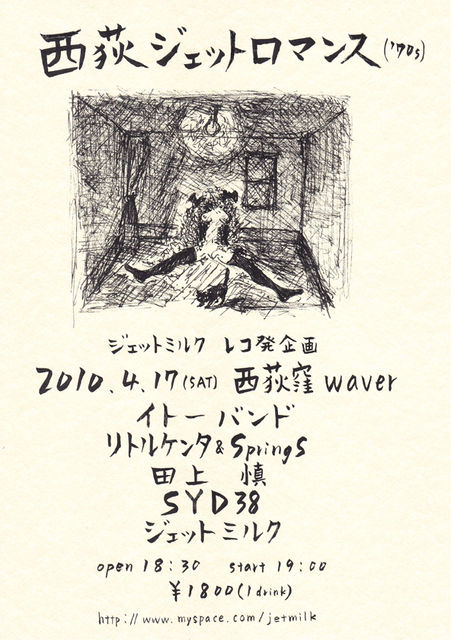 西荻ジェットロマンス('70s)
ジェットミルク レコ発企画
2010.4.17(SAT) 西荻窪 waver
イトーバンド
リトルケンタ&SpringS
田上 慎
SYD38
ジェットミルク
open 18:30 start 19:00
¥1800(1drink)
http://www.myspace.com/jetmilk